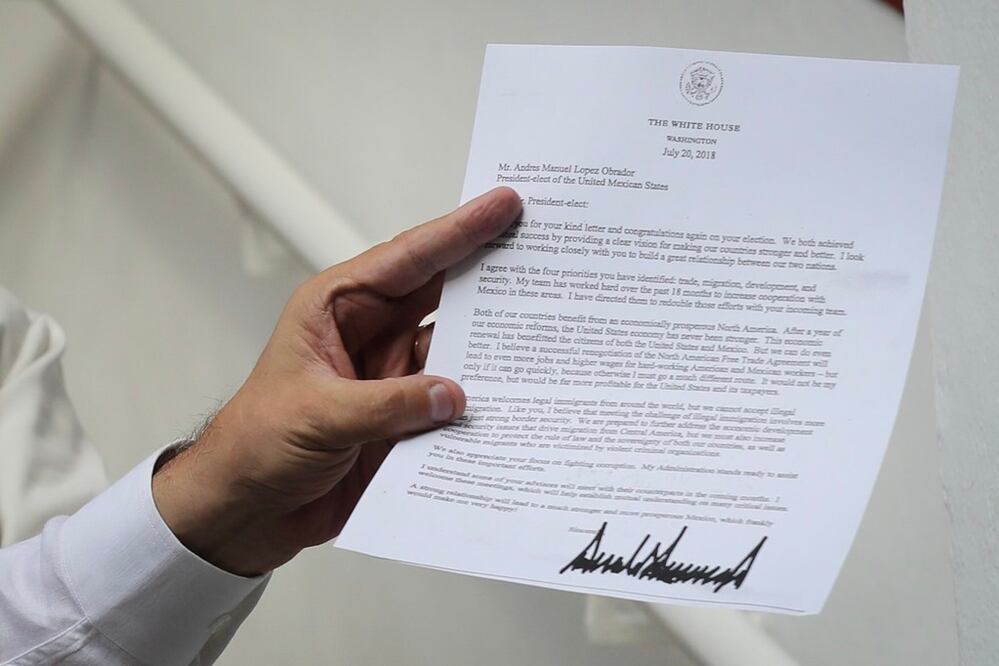 THE WHITE HOUSE
WASHINGTON
July 20, 2018
Mr. Andres Manuel Lopez Obrador
President-elect of the United Mexican States
President-elect:
you for your kind letter and congratulations again on your election. We both achieved
success by providing a clear vision for making our countries stronger and better. I look
to working closely with you to build a great relationship between our two nations.
I agree with the four priorities you have identified: trade, migration, development, and
security. My team has worked hard over the past 18 months to increase cooperation with
Mexico in these areas. I have directed them to redouble those efforts with your incoming team.
Both of our countries benefit from an economically prosperous North America. After a year of
our economic reforms, the United States economy has never been stronger. This economic
renewal has benefitted the citizens of both the United States and Mexico. But we can do even
better. I believe a successful renegotiation of the North American Free Trade Agreement will
lead to even more jobs and higher wages for hard-working American and Mexican workers – but
only if it can go quickly, because otherwise I must go a much different route. It would not be my
preference, but would be far more profitable for the United States and its taxpayers.
welcomes legal immigrants from around the world, but we cannot accept illegal
Like you, I believe that meeting the challenge of illegal immigration involves more
just strong border security. We are prepared to further address the economic development
security issues that drive migration from Central America, but we must also increase
cooperation to protect the rule of law and the sovereignty of both our countries, as well as
vulnerable migrants who are victimized by violent criminal organizations.
We also appreciate your focus on fighting corruption. My Administration stands ready to assist
you in these important efforts.
I understand some of your advisors will meet with their counterparts in the coming months. I
welcome these meetings, which will help establish mutual understanding on many critical issues.
A strong relationship will lead to a much stronger and more prosperous Mexico, which frankly
would make me very happy!